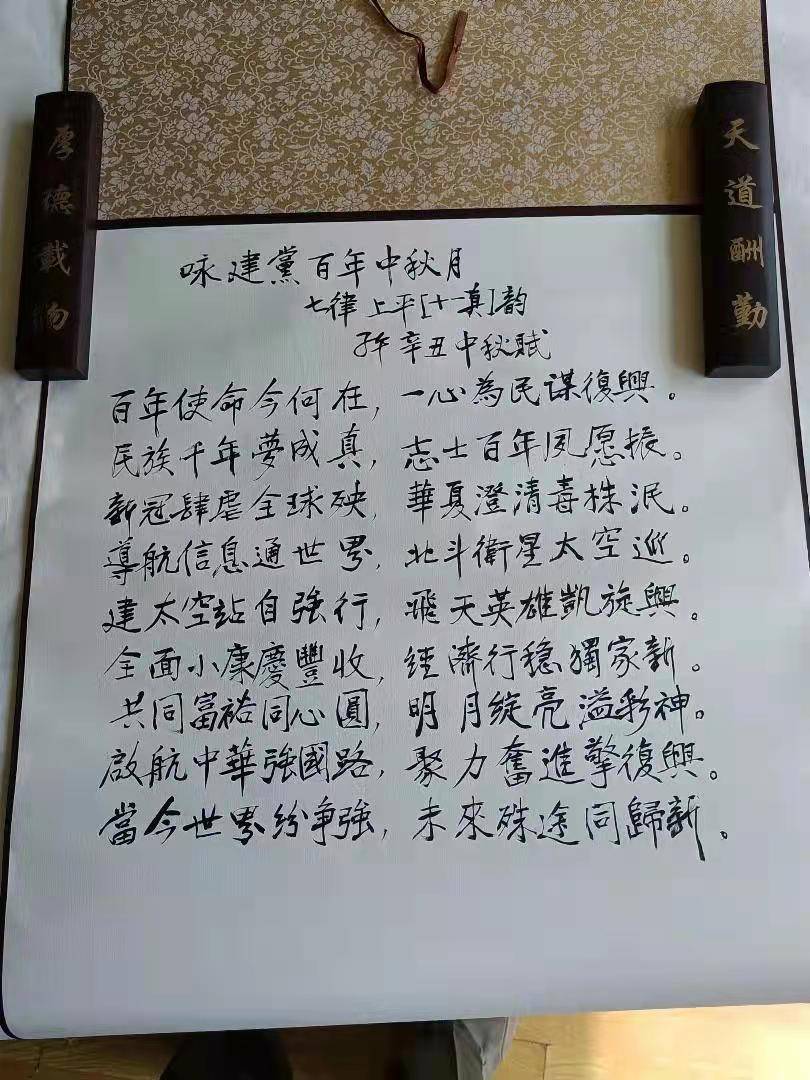 厚德載物
天道酬勤
咏建黨百年中秋月
七律 上平[十一真]韵
辛丑中秋賦
百年使命今何在，一心為民謀復興。
民族千年夢成真，志士百年夙愿振。
新冠肆虐全球殃，華夏澄清毒株泯。
導航信息通世界，北斗衛星太空巡。
建太空站自強行，飛天英雄凱旋興。
全面小康慶豐收，經濟行穩獨家新。
共同富裕同心圓，明月綻亮溢彩神。
啟航中華強國路，聚力奮進擎復興。
當今世界紛爭強，未來殊途同歸新。